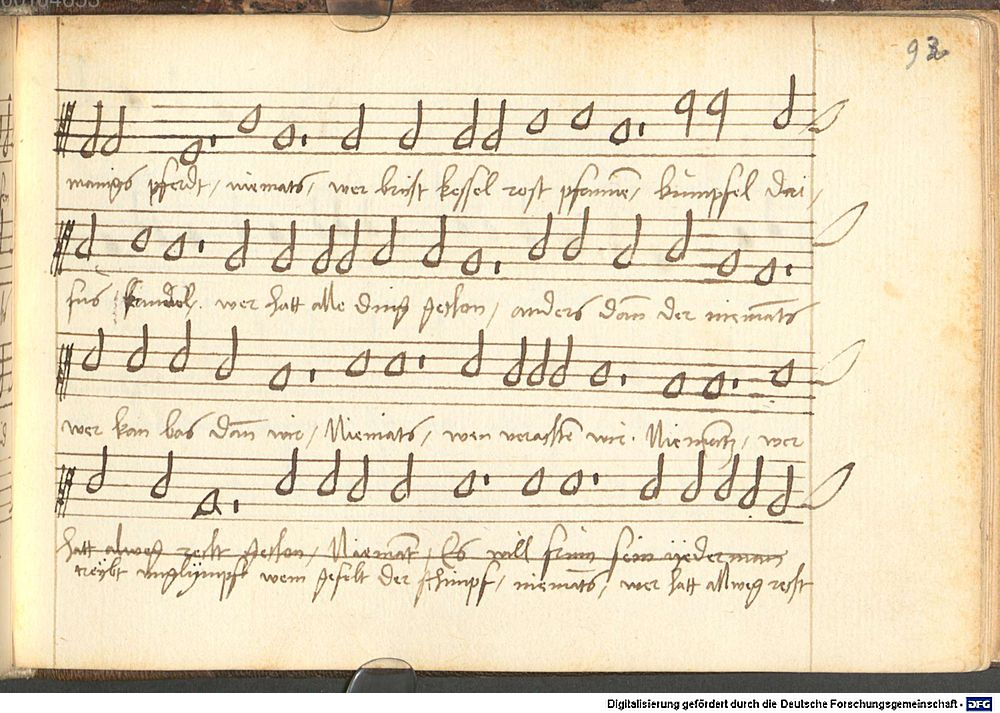 92
manigs pferdt / niemats / wer brist kessel rost pfannen /
fus / wer hatt alle ding gethon / anders dann der niemats
wer kan bas dann wir / Niemats / wen verachten wir. / wer
hatt alweg recht gethon / Niemant / Es will frum sein yederman
treybt unglympf wem gefelt der schimpf / niemats / wer hatt allweg recht
Digitalisierung gefördert durch die Deutsche Forschungsgemeinschaft - DFG